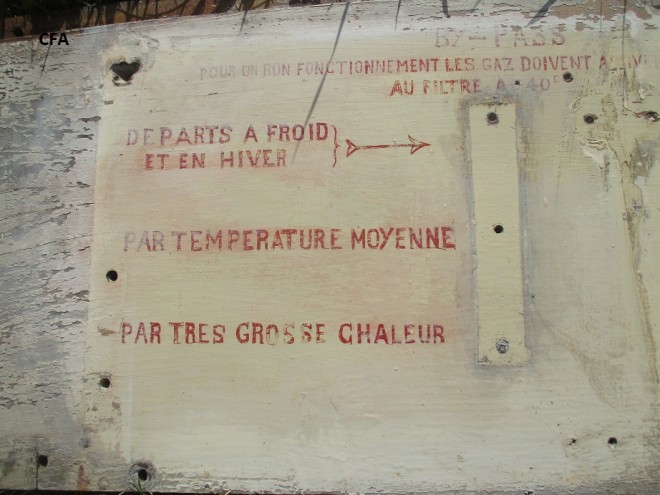 CFA
BY-PASS
POUR UN BON FONCTIONNEMENT LES GAZ DOIVENT
AU FILTRE A 40°
DEPARTS A FROID
ET EN HIVER
PAR TEMPERATURE MOYENNE
PAR TRES GROSSE CHALEUR